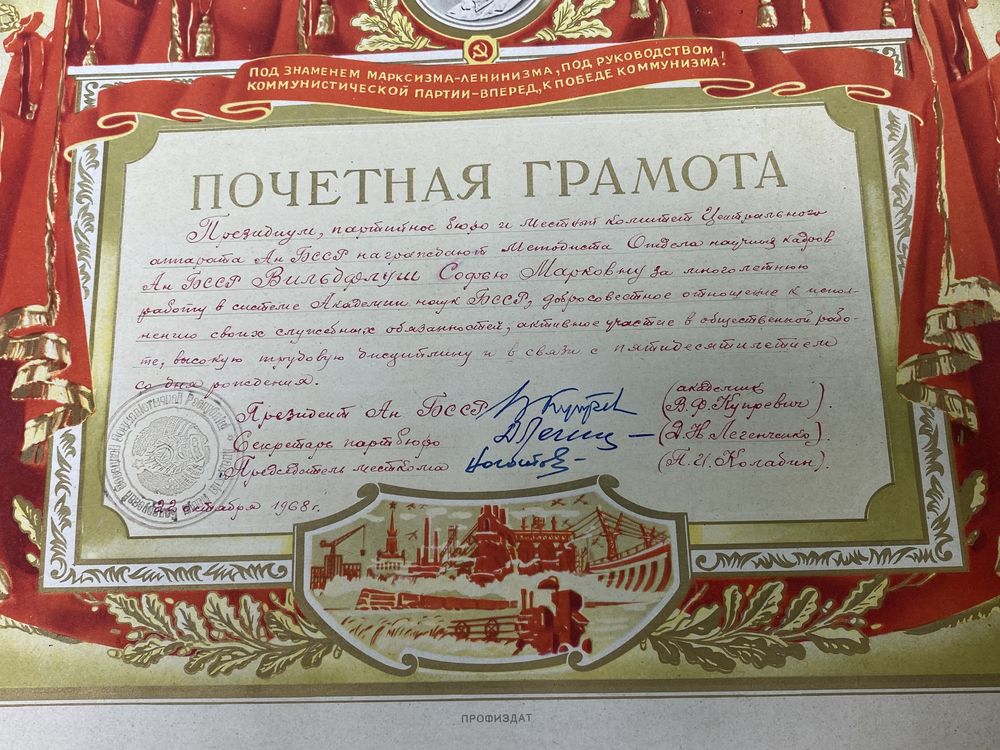 ПОД ЗНАМЕНЕМ МАРКСИЗМА-ЛЕНИНИЗМА, ПОД РУКОВОДСТВОМ
КОММУНИСТИЧЕСКОЙ ПАРТИИ-ВПЕРЕД, К ПОБЕДЕ КОММУНИЗМА!
ПОЧЕТНАЯ ГРАМОТА
Президиум, партийное бюро и местный комитет Центрального
аппарата Ан БССР награждают методиста Отдела научных кадров
Ан БССР Вильдфлуш Софью Марковну за многолетнюю
работу в системе Академии наук БССР, добросовестное отношение к испол-
нению своих служебных обязанностей, активное участие в общественной рабо-
те, высокую трудовую дисциплину и в связи с пятидесятилетием
со дня рождения.
Президент Ан БССР (академик В.Ф. Купревич).
Секретарь партбюро (Д.Н. Легенченко).
Председатель месткома (П.И. Колабин).
22 октября 1968 г.
ПРОФИЗДАТ